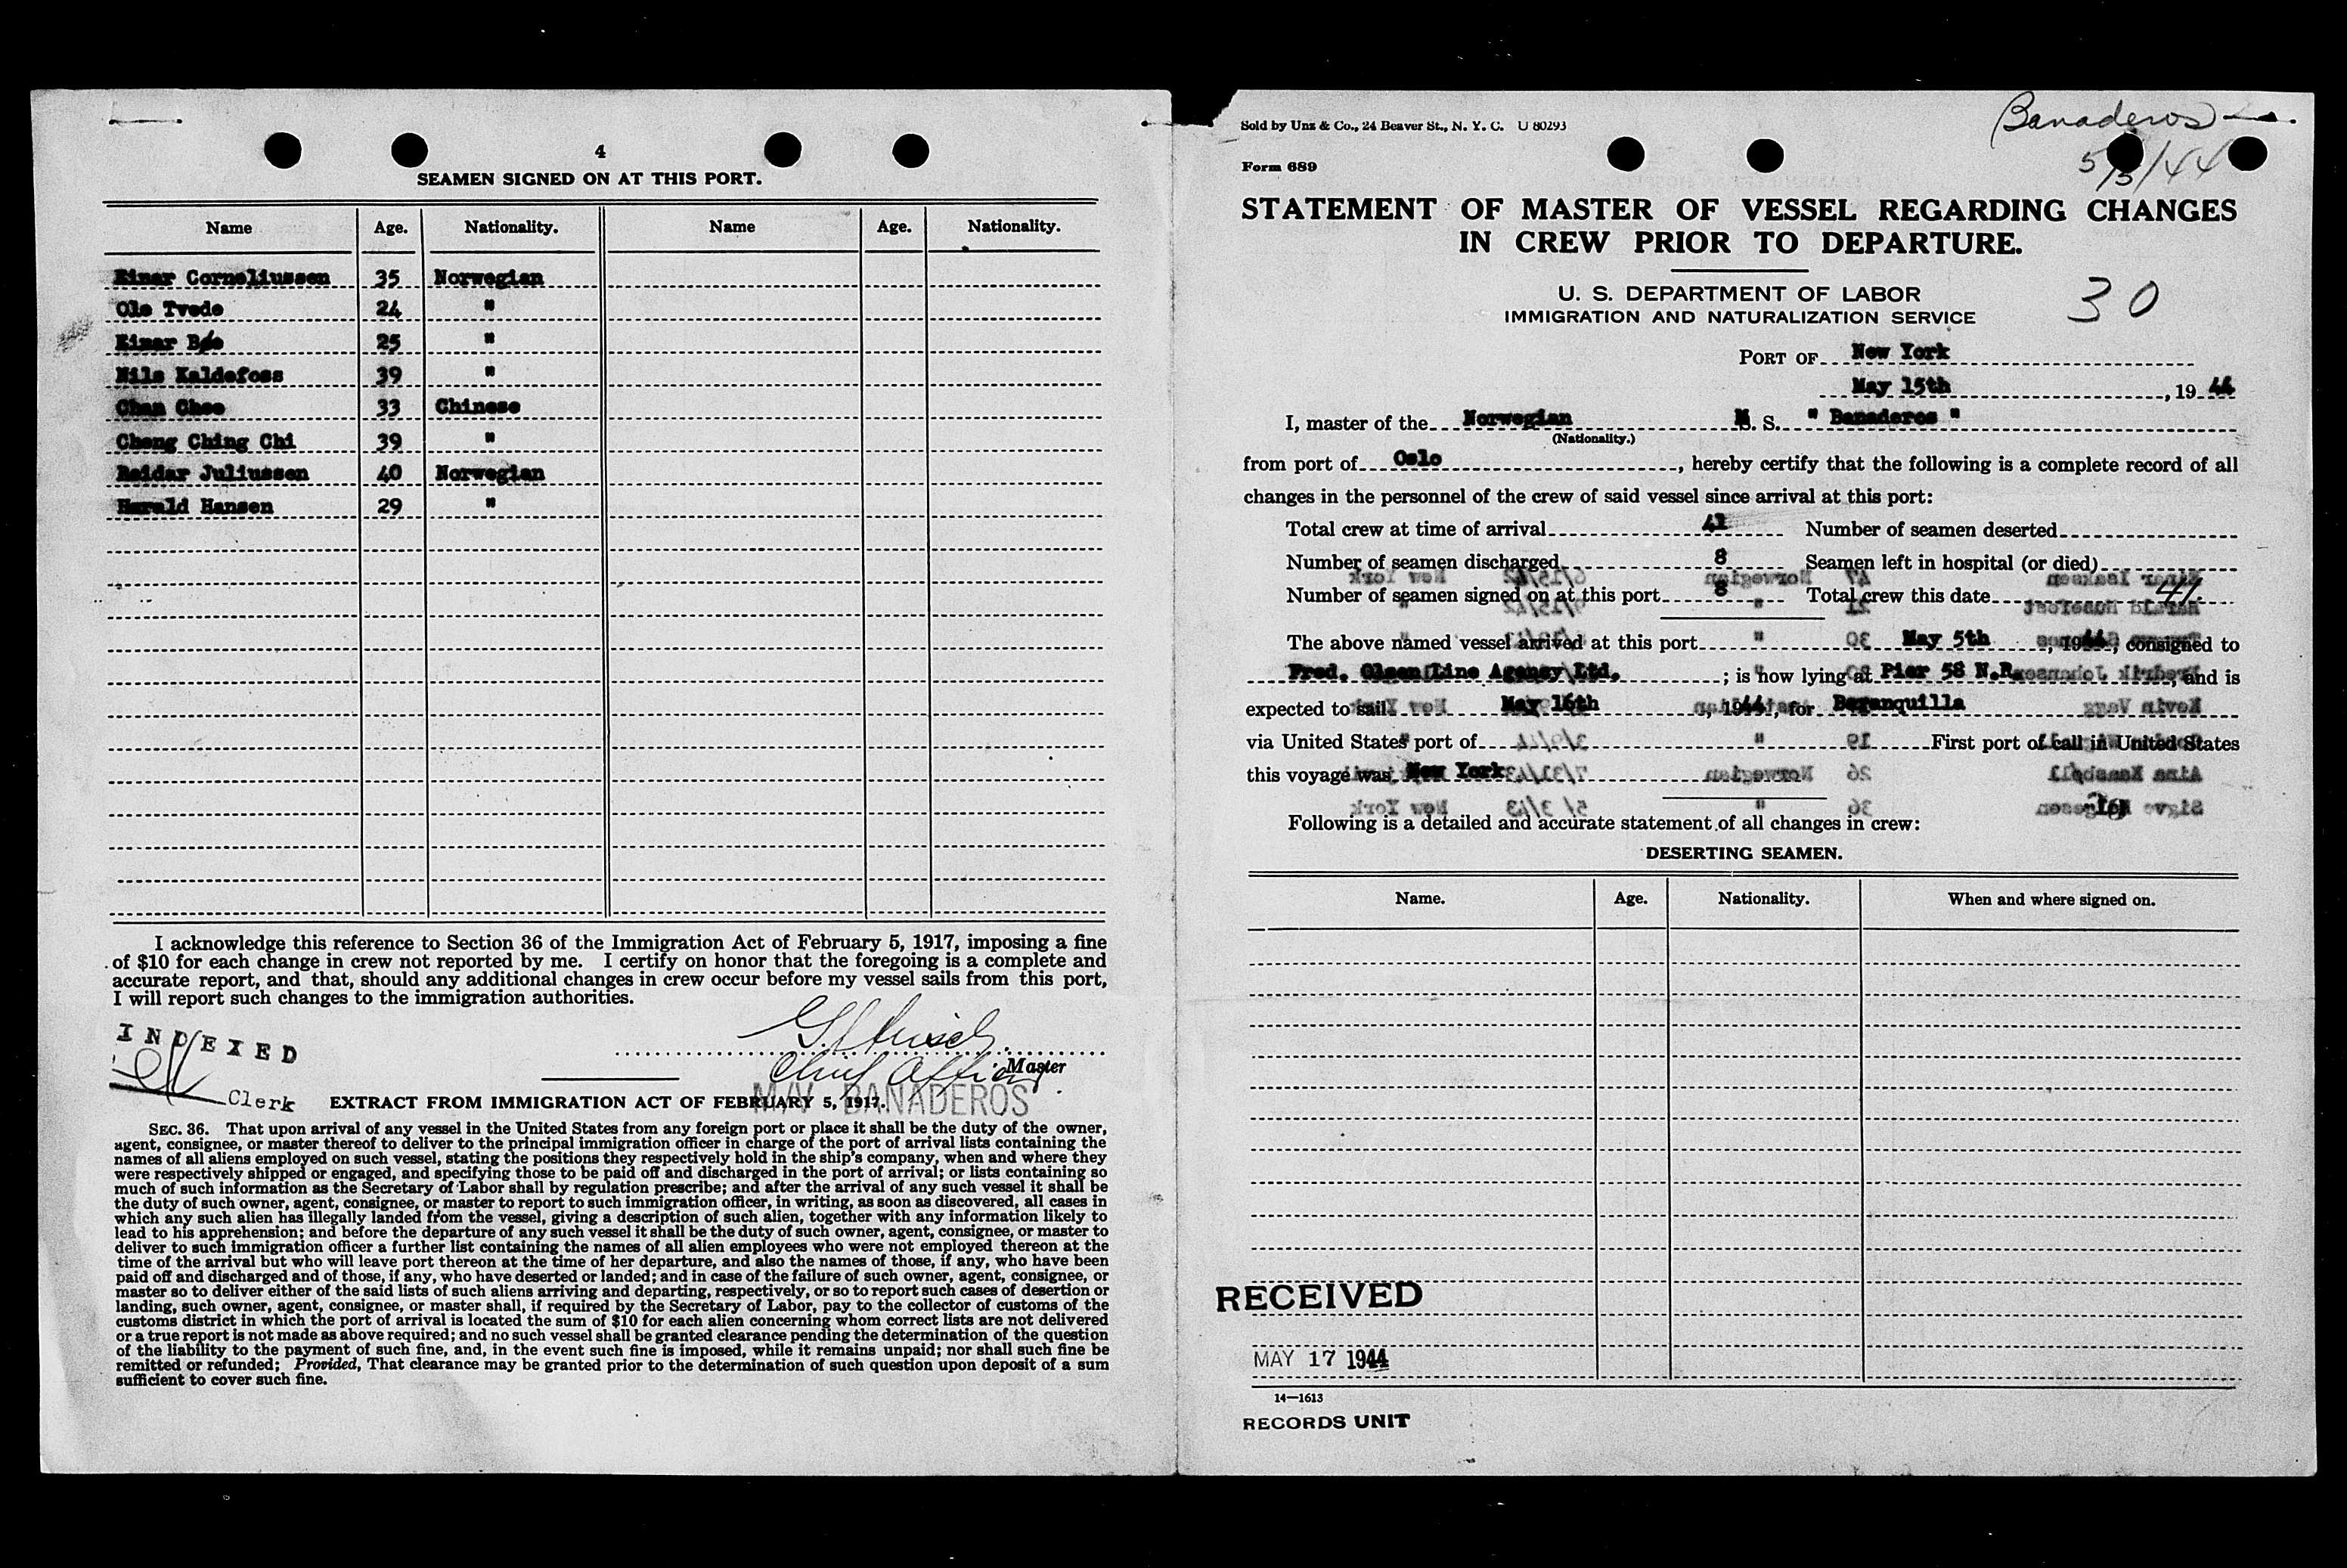 4
SEAMEN SIGNED ON AT THIS PORT.
Name Age. Nationality. Name Age. Nationality.
Einar Corneliussen 35 Norwegian
Ole Tvede 24 "
Einar Bøe 25 "
Nils Kaldefoss 39 "
Chan Chee 33 Chinese
Cheng Ching Chi 39 "
Reidar Juliussen 40 Norwegian
Harald Hansen 29 "
I acknowledge this reference to Section 36 of the Immigration Act of February 5, 1917, imposing a fine
of $10 for each change in crew not reported by me. I certify on honor that the foregoing is a complete and
accurate report, and that, should any additional changes in crew occur before my vessel sails from this port,
I will report such changes to the immigration authorities.
INDEXED
Chief Officer Master
Clerk
M/V BANADEROS
EXTRACT FROM IMMIGRATION ACT OF FEBRUARY 5, 1917.
SEC. 36. That upon arrival of any vessel in the United States from any foreign port or place it shall be the duty of the owner,
agent, consignee, or master thereof to deliver to the principal immigration officer in charge of the port of arrival lists containing the
names of all aliens employed on such vessel, stating the positions they respectively hold in the ship's company, when and where they
were respectively shipped or engaged, and specifying those to be paid off and discharged in the port of arrival; or lists containing so
much of such information as the Secretary of Labor shall by regulation prescribe; and after the arrival of any such vessel it shall be
the duty of such owner, agent, consignee, or master to report to such immigration officer, in writing, as soon as discovered, all cases in
which any such alien has illegally landed from the vessel, giving a description of such alien, together with any information likely to
lead to his apprehension; and before the departure of any such vessel it shall be the duty of such owner, agent, consignee, or master to
deliver to such immigration officer a further list containing the names of all alien employees who were not employed thereon at the
time of the arrival but who will leave port thereon at the time of her departure, and also the names of those, if any, who have been
paid off and discharged and of those, if any, who have deserted or landed; and in case of the failure of such owner, agent, consignee, or
master so to deliver either of the said lists of such aliens arriving and departing, respectively, or so to report such cases of desertion or
landing, such owner, agent, consignee, or master shall, if required by the Secretary of Labor, pay to the collector of customs of the
customs district in which the port of arrival is located the sum of $10 for each alien concerning whom correct lists are not delivered
or a true report is not made as above required; and no such vessel shall be granted clearance pending the determination of the question
of the liability to the payment of such fine, and, in the event such fine is imposed, while it remains unpaid; nor shall such fine be
remitted or refunded; Provided, That clearance may be granted prior to the determination of such question upon deposit of a sum
sufficient to cover such fine.
Banaderos
5/5/44
Sold by Unz & Co., 24 Beaver St., N. Y. C. U 80293
Form 689
STATEMENT OF MASTER OF VESSEL REGARDING CHANGES
IN CREW PRIOR TO DEPARTURE.
U. S. DEPARTMENT OF LABOR
IMMIGRATION AND NATURALIZATION SERVICE
30
PORT OF New York
May 15th, 1944
I, master of the Norwegian M. S. " Banaderos "
(Nationality.)
from port of Oslo, hereby certify that the following is a complete record of all
changes in the personnel of the crew of said vessel since arrival at this port:
Total crew at time of arrival 41 Number of seamen deserted
Number of seamen discharged 8 Seamen left in hospital (or died)
Number of seamen signed on at this port 8 Total crew this date 41.
The above named vessel arrived at this port May 5th, 1944, consigned to
Fred. Olsen Line Agency Ltd. ; is now lying at Pier 58 N.R., and is
expected to sail May 16th, 1944, for Baranquilla
via United States port of First port of call in United States
this voyage was New York
Following is a detailed and accurate statement of all changes in crew:
DESERTING SEAMEN.
Name. Age. Nationality. When and where signed on.
RECEIVED
MAY 17 1944
14—1613
RECORDS UNIT